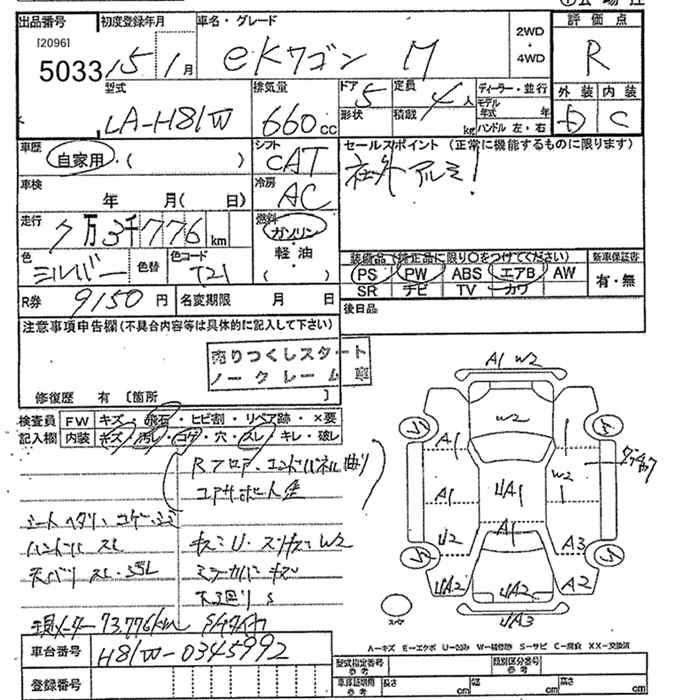 出品番号 初度登録年月 車名・グレード 評価点
[2096]
5033 15 1月 eKワゴン M 2WD・4WD R
型式 排気量 ドア 定員 ディーラー・並行 外装 内装
LA-H81W 660cc 5 4人 モデル年式 年 D C
形状 積載 kg ハンドル 左・右
車歴 自家用・( ) シフト CAT セールスポイント (正常に機能するものに限ります)
社外アルミ!
車検 年 月( 日) 冷房 AC
走行 7万3千776km 燃料 ガソリン・軽油 ( )
色 シルバー 色替 色コード T21
装備品 (純正品に限り○をつけてください) 新車保証書
PS PW ABS エアB AW 有・無
SR ナビ TV カワ
R券 9150円 名変期限 月 日 後日品
注意事項申告欄 (不具合内容等は具体的に記入して下さい)
売りつくしスタート
ノークレーム車
修復歴 有 〔箇所 〕
検査員 FW キズ・飛石・ヒビ割・リペア跡・×要
記入欄 内装 キズ・汚レ・コゲ・穴・スレ・キレ・破レ
Rフロア・エンドパネル曲り
シートヘタリ・コゲ・シミ
ハンドルスレ キズU・スリキズW2
天バリスレ・汚レ
下回りS
現メーター73,776km
A1 W2
W2
A1
W2
A1
UA1
A1
U2
A3
UA2
UA2
A2
UA3
スペア
A-キズ E-エクボ U-凹み W-補修跡 S-サビ C-腐食 XX-交換済
車台番号 H81W-0345992
登録番号
型式指定番号 参考 類別区分番号 参考
車庫証明用 参考 長さ cm 幅 cm 高さ cm